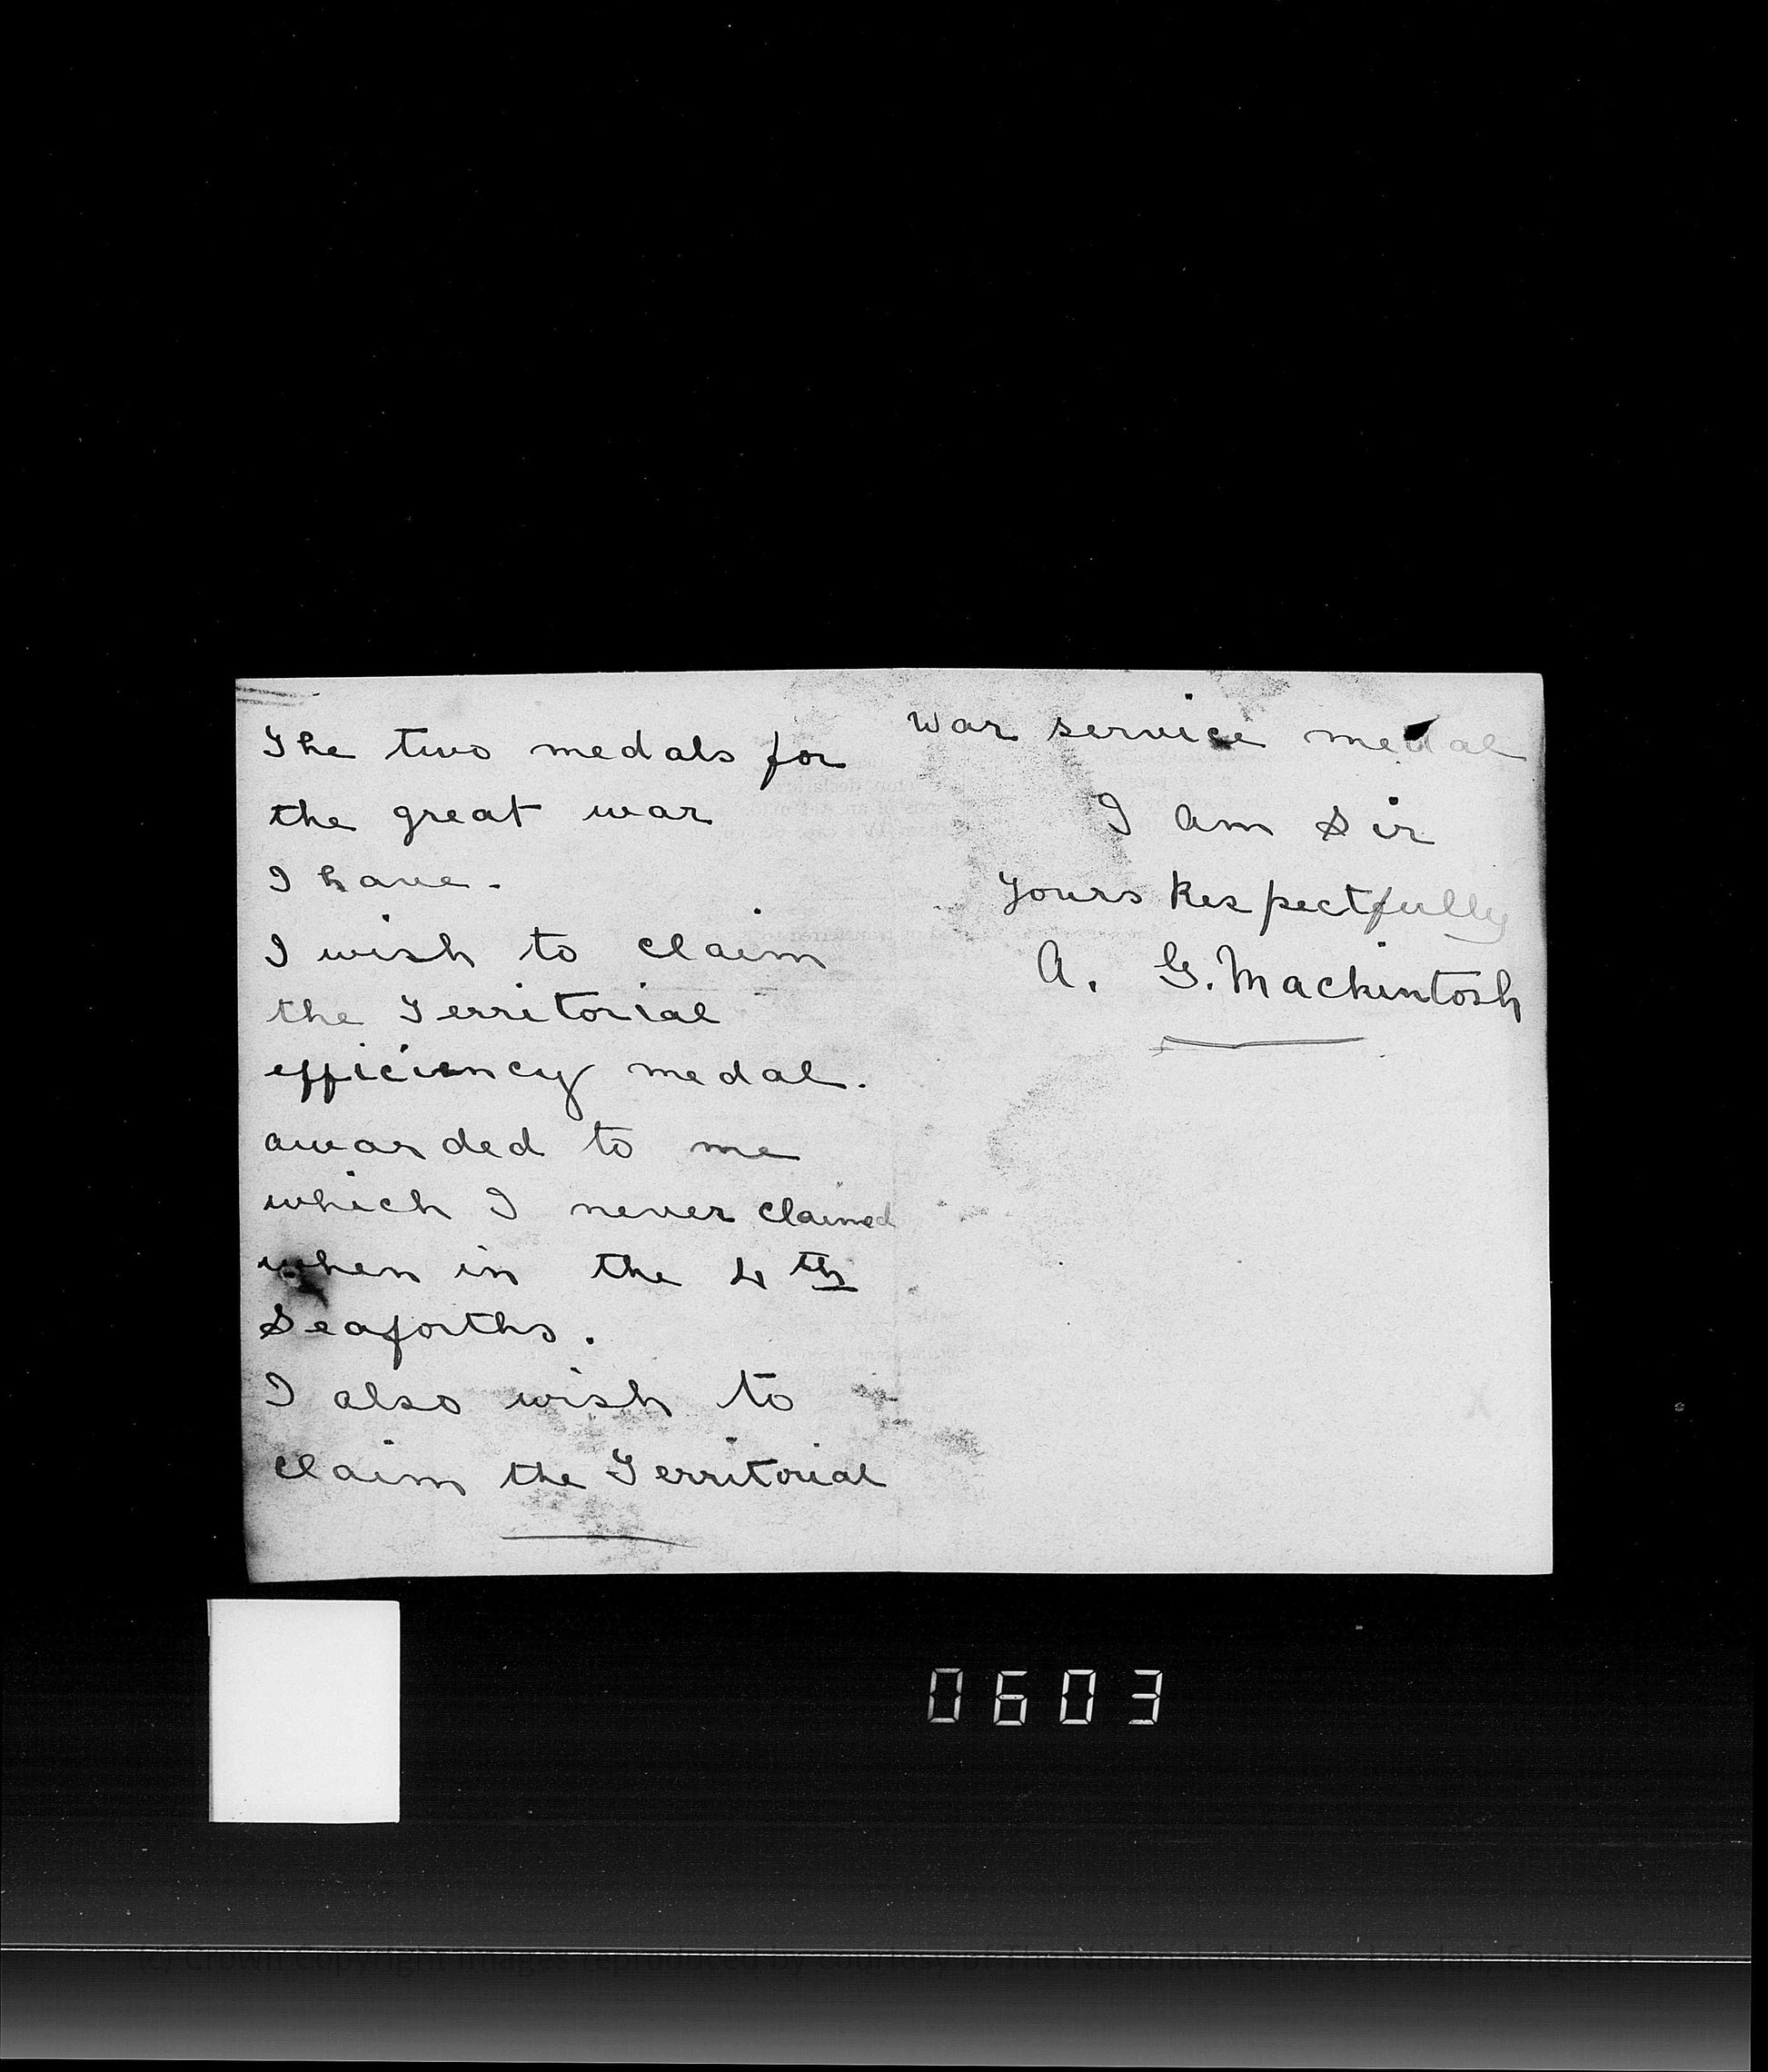 The two medals for
the great war
I have.
I wish to claim
the Territorial
efficiency medal.
awarded to me
which I never claimed
when in the 4th
Seaforths.
I also wish to
claim the Territorial
war service medal
I am Sir
yours Respectfully
A. G. Mackintosh
0603
(c) Crown Copyright Images reproduced by courtesy of The National Archives, London, England.